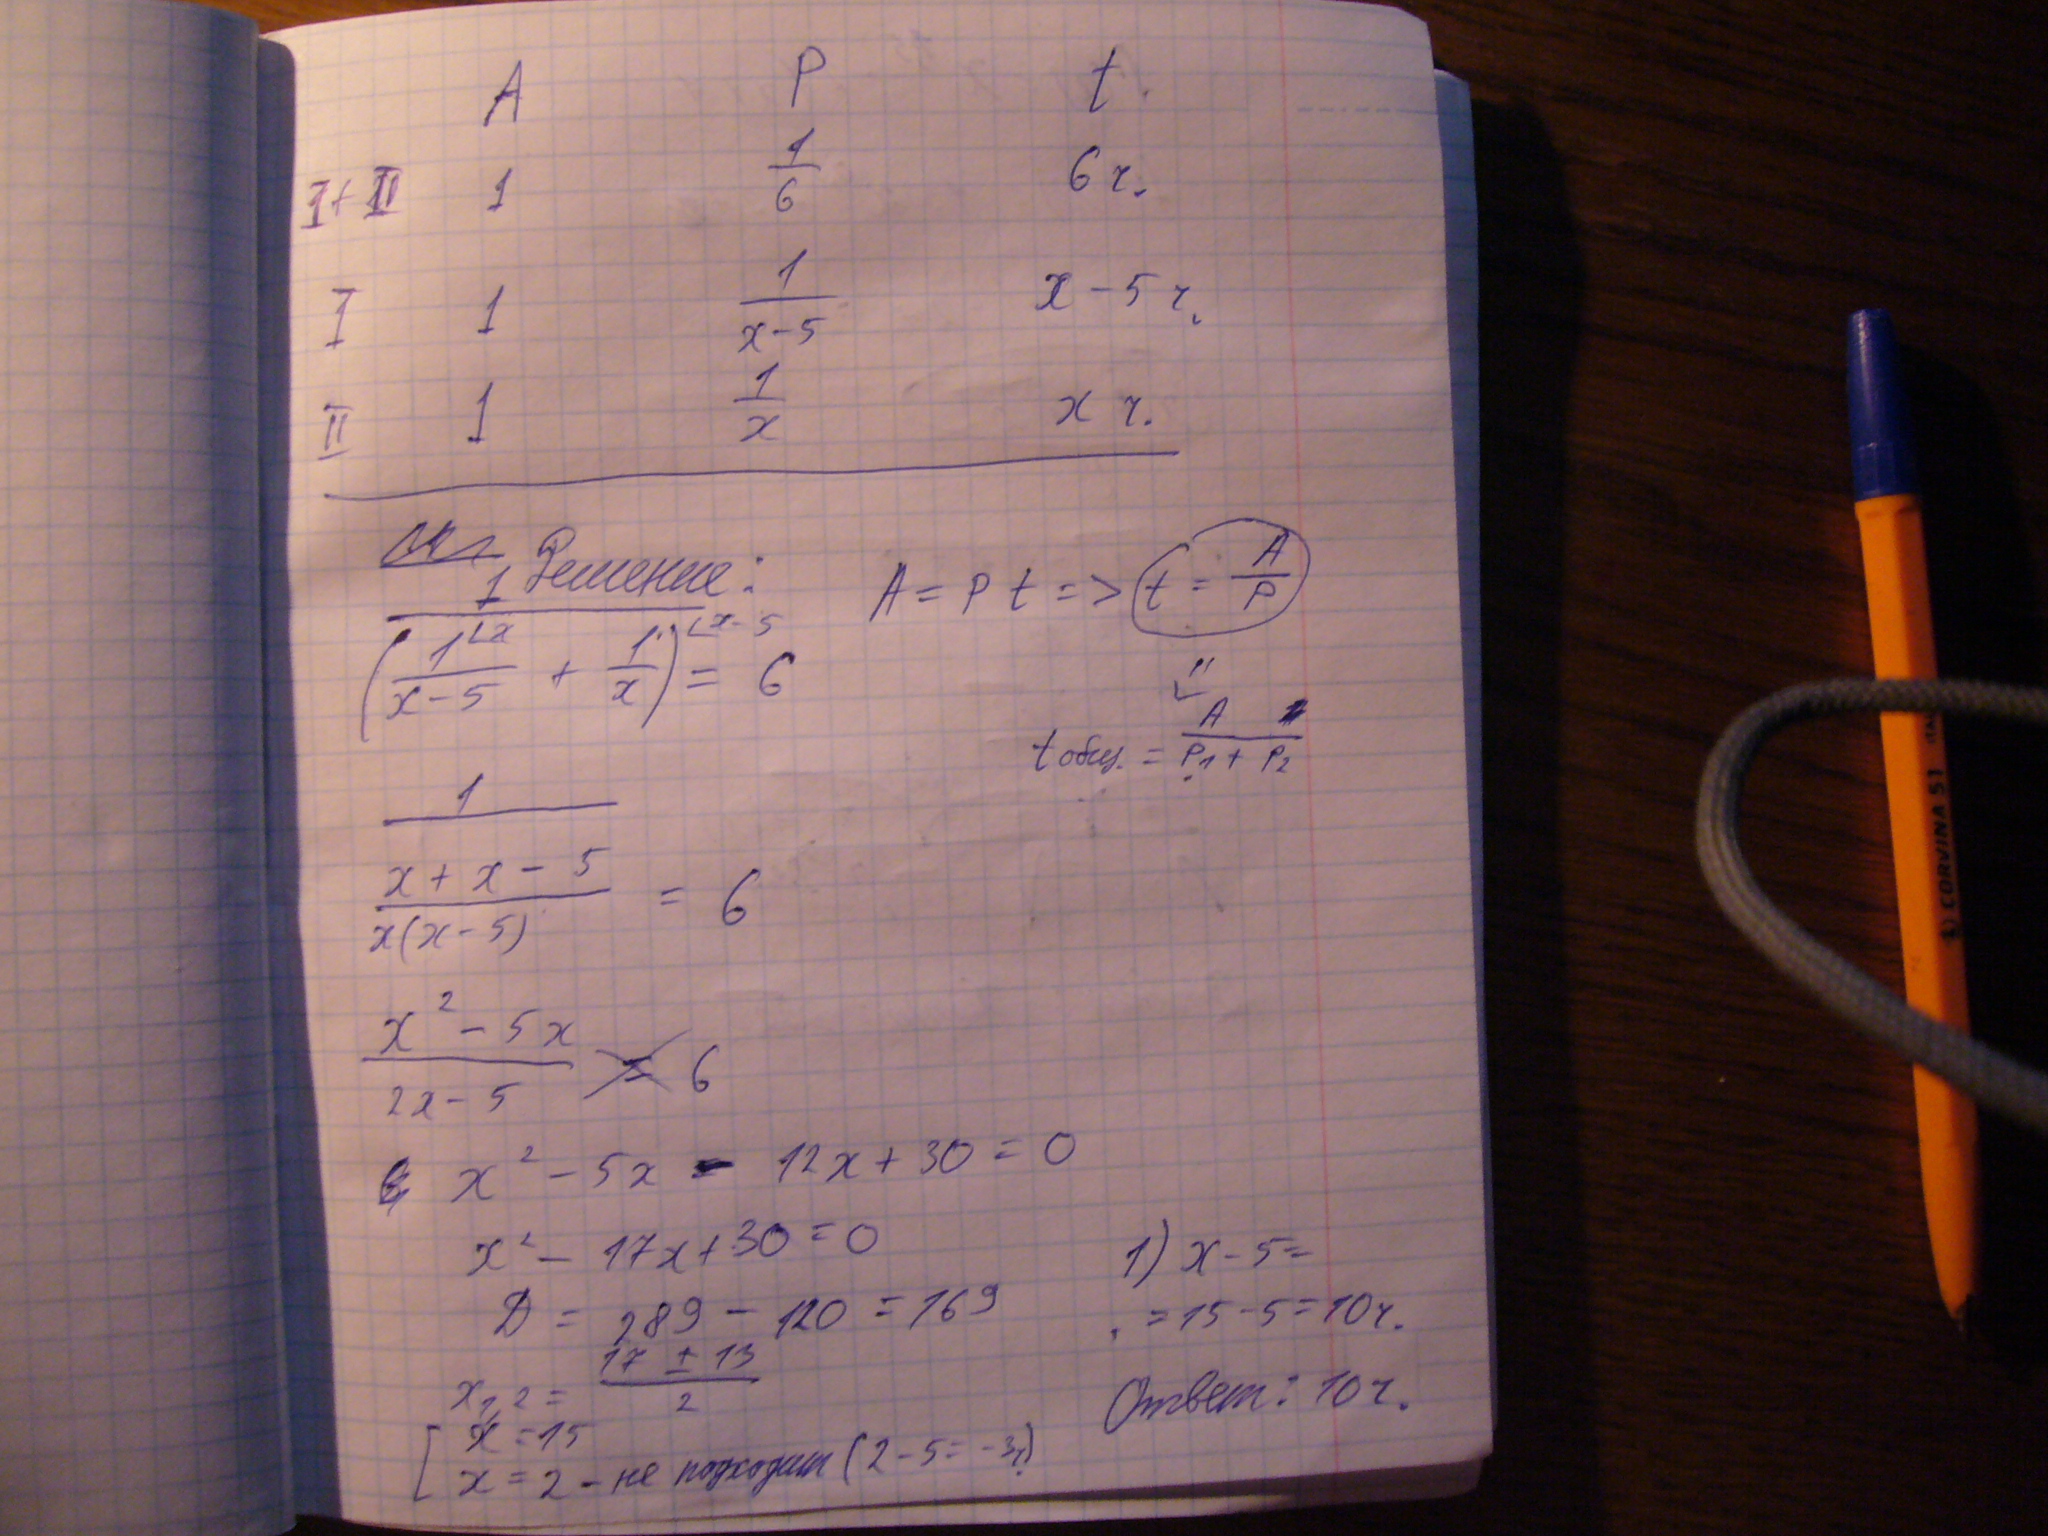 A P t
I+II 1 1/6 6 ч.
I 1 1/(x-5) x-5 ч.
II 1 1/x x ч.
Решение:
A = P t => t = A/P
1/(1/(x-5) + 1/x) = 6
t общ. = A/(P1 + P2)
1/((x+x-5)/(x(x-5))) = 6
(x² - 5x)/(2x-5) = 6
x² - 5x - 12x + 30 = 0
x² - 17x + 30 = 0
D = 289 - 120 = 169
x1,2 = (17 ± 13)/2
x = 15
x = 2 - не подходит (2-5 = -3ч)
1) x - 5 =
= 15 - 5 = 10 ч.
Ответ: 10 ч.
CORVINA 51